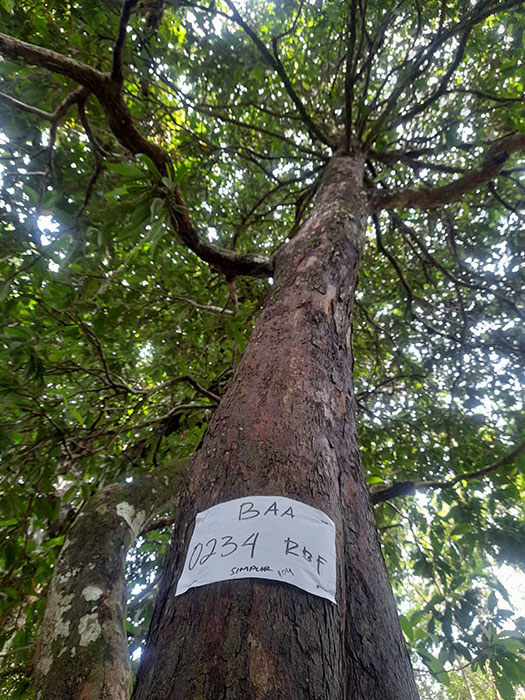 BAA
0234 RBF
SIMPUR 104